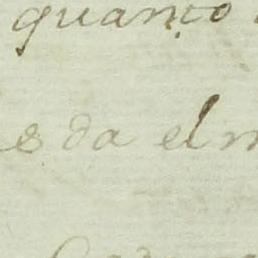 quanto
es da el m